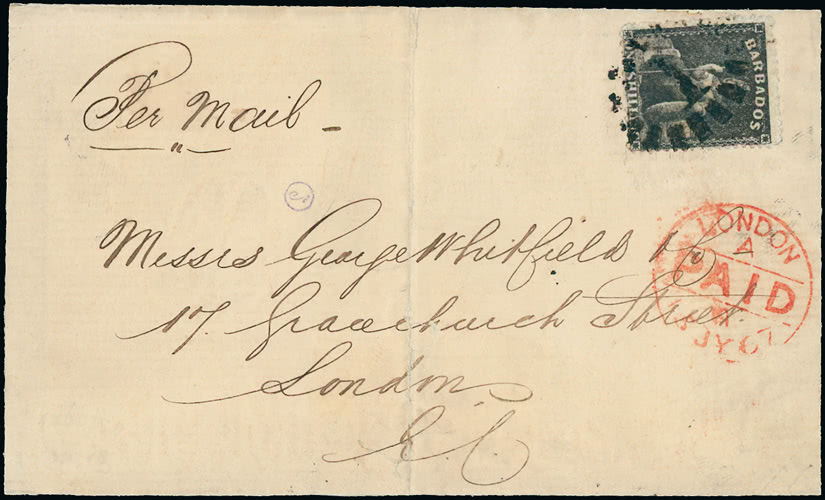 Per Mail
BARBADOS
S
LONDON
A
PAID
JY 67
Messrs George Whitfield & Co
17. Gracechurch Street
London
E.C.